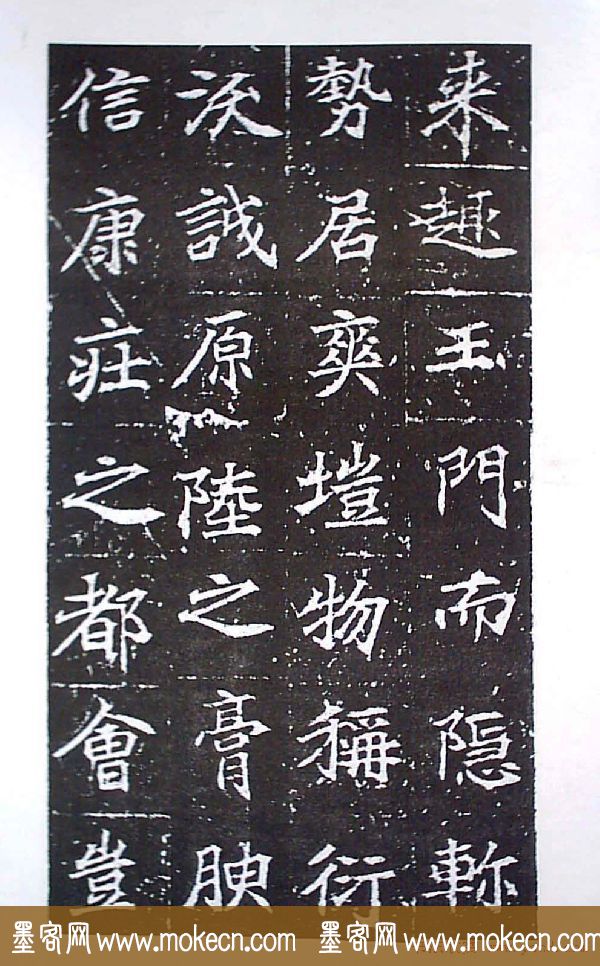 来趣王門而隐軫
勢居爽塏物稱衍
沃誠原陸之膏腴
信康莊之都會豈
墨客网 www.mokecn.com 墨客网 www.mokecn.com